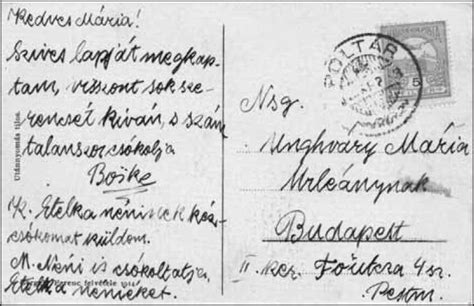 Kedves Mária!
Szives lapját megkap-
tam, viszont sok sze-
rencsét kíván, s szám
talanszor csókolja
Böske
K. Etelka néninek kéz-
csókomat küldöm.
M. Néni is csókoltatja
Etelka nénieket.
Utánnyomás tilos.
Ferenc felvétele 1914
POLTÁR
5
Nsg.
Unghváry Mária
Urleánynak
Budapest
II. ker. Főútcza 4 sz.
Pestm.